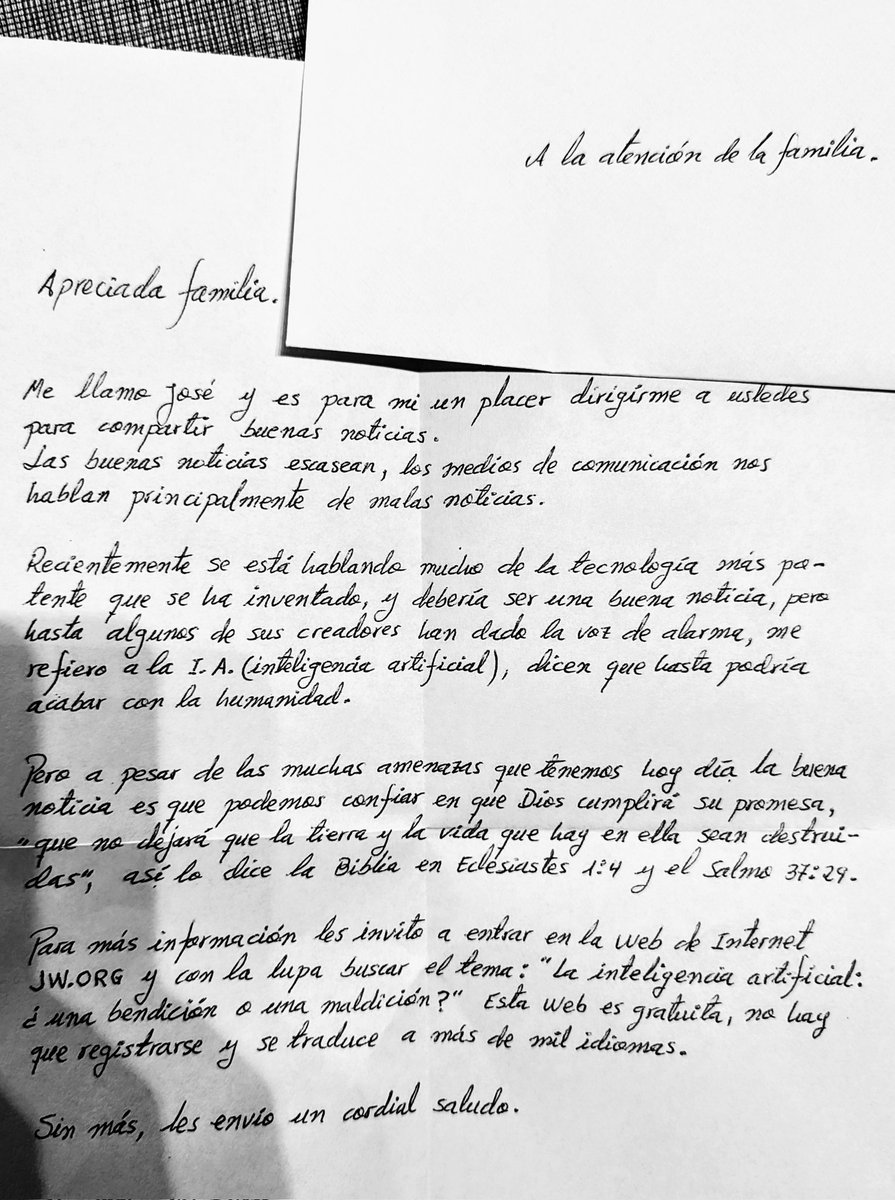 A la atención de la familia.
Apreciada familia.
Me llamo José y es para mi un placer dirigirme a ustedes
para compartir buenas noticias.
Las buenas noticias escasean, los medios de comunicación nos
hablan principalmente de malas noticias.
Recientemente se está hablando mucho de la tecnología más po-
tente que se ha inventado, y debería ser una buena noticia, pero
hasta algunos de sus creadores han dado la voz de alarma, me
refiero a la I.A. (inteligencia artificial), dicen que hasta podría
acabar con la humanidad.
Pero a pesar de las muchas amenazas que tenemos hoy día la buena
noticia es que podemos confiar en que Dios cumplirá su promesa,
"que no dejará que la tierra y la vida que hay en ella sean destrui-
das", así lo dice la Biblia en Eclesiastes 1:4 y el Salmo 37:29.
Para más información les invito a entrar en la Web de Internet
JW.ORG y con la lupa buscar el tema: "La inteligencia artificial:
¿una bendición o una maldición?" Esta Web es gratuita, no hay
que registrarse y se traduce a más de mil idiomas.
Sin más, les envío un cordial saludo.